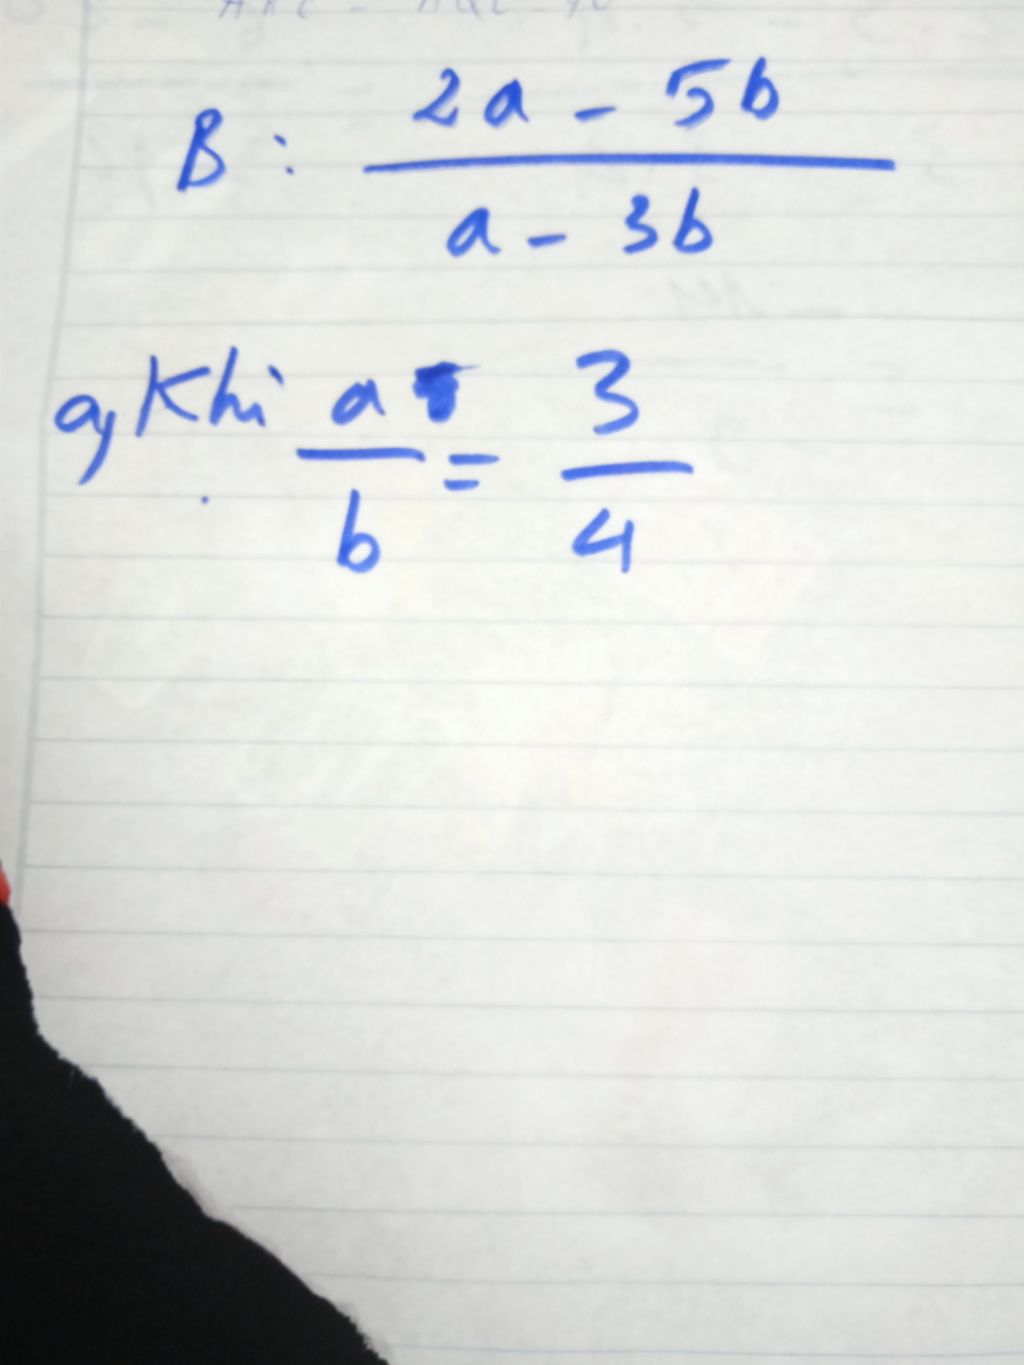 B: 2a - 5b
a - 3b
a, Khi a/b = 3/4